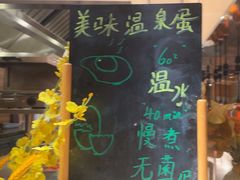 美味温泉蛋
60°
温水
40min
慢煮
无菌